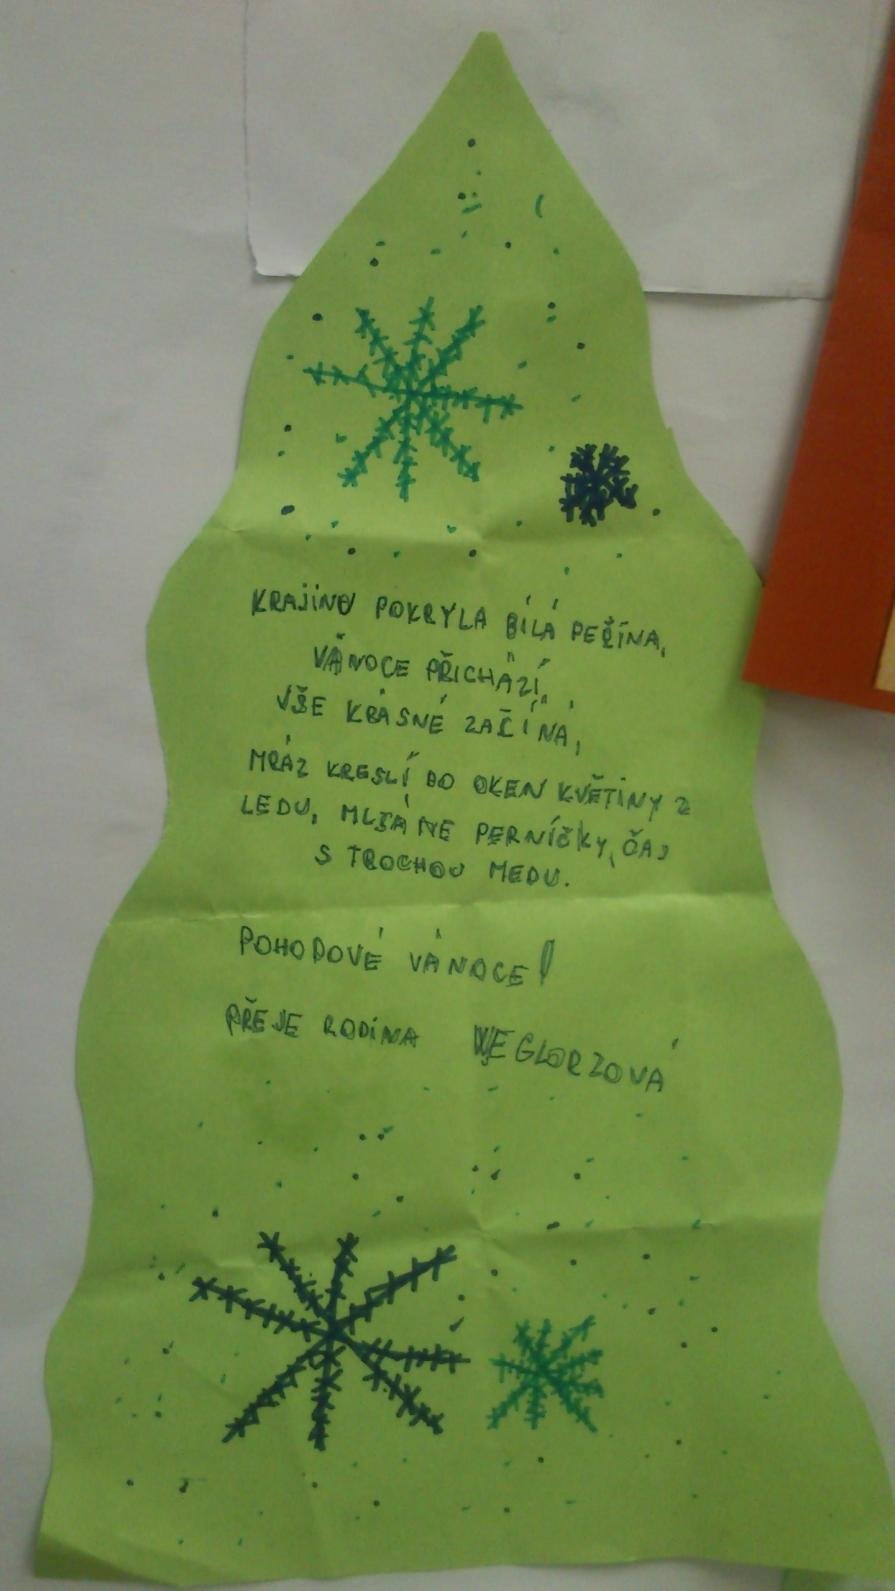 KRAJINU POKRYLA BÍLÁ PEŘÍNA,
VÁNOCE PŘICHÁZÍ,
VŠE KRÁSNÉ ZAČÍNÁ,
MRÁZ KRESLÍ DO OKEN KVĚTINY Z
LEDU, MLSÁME PERNÍČKY, ČAJ
S TROCHOU MEDU.
POHODOVÉ VÁNOCE!
PŘEJE RODINA WEGLORZOVÁ